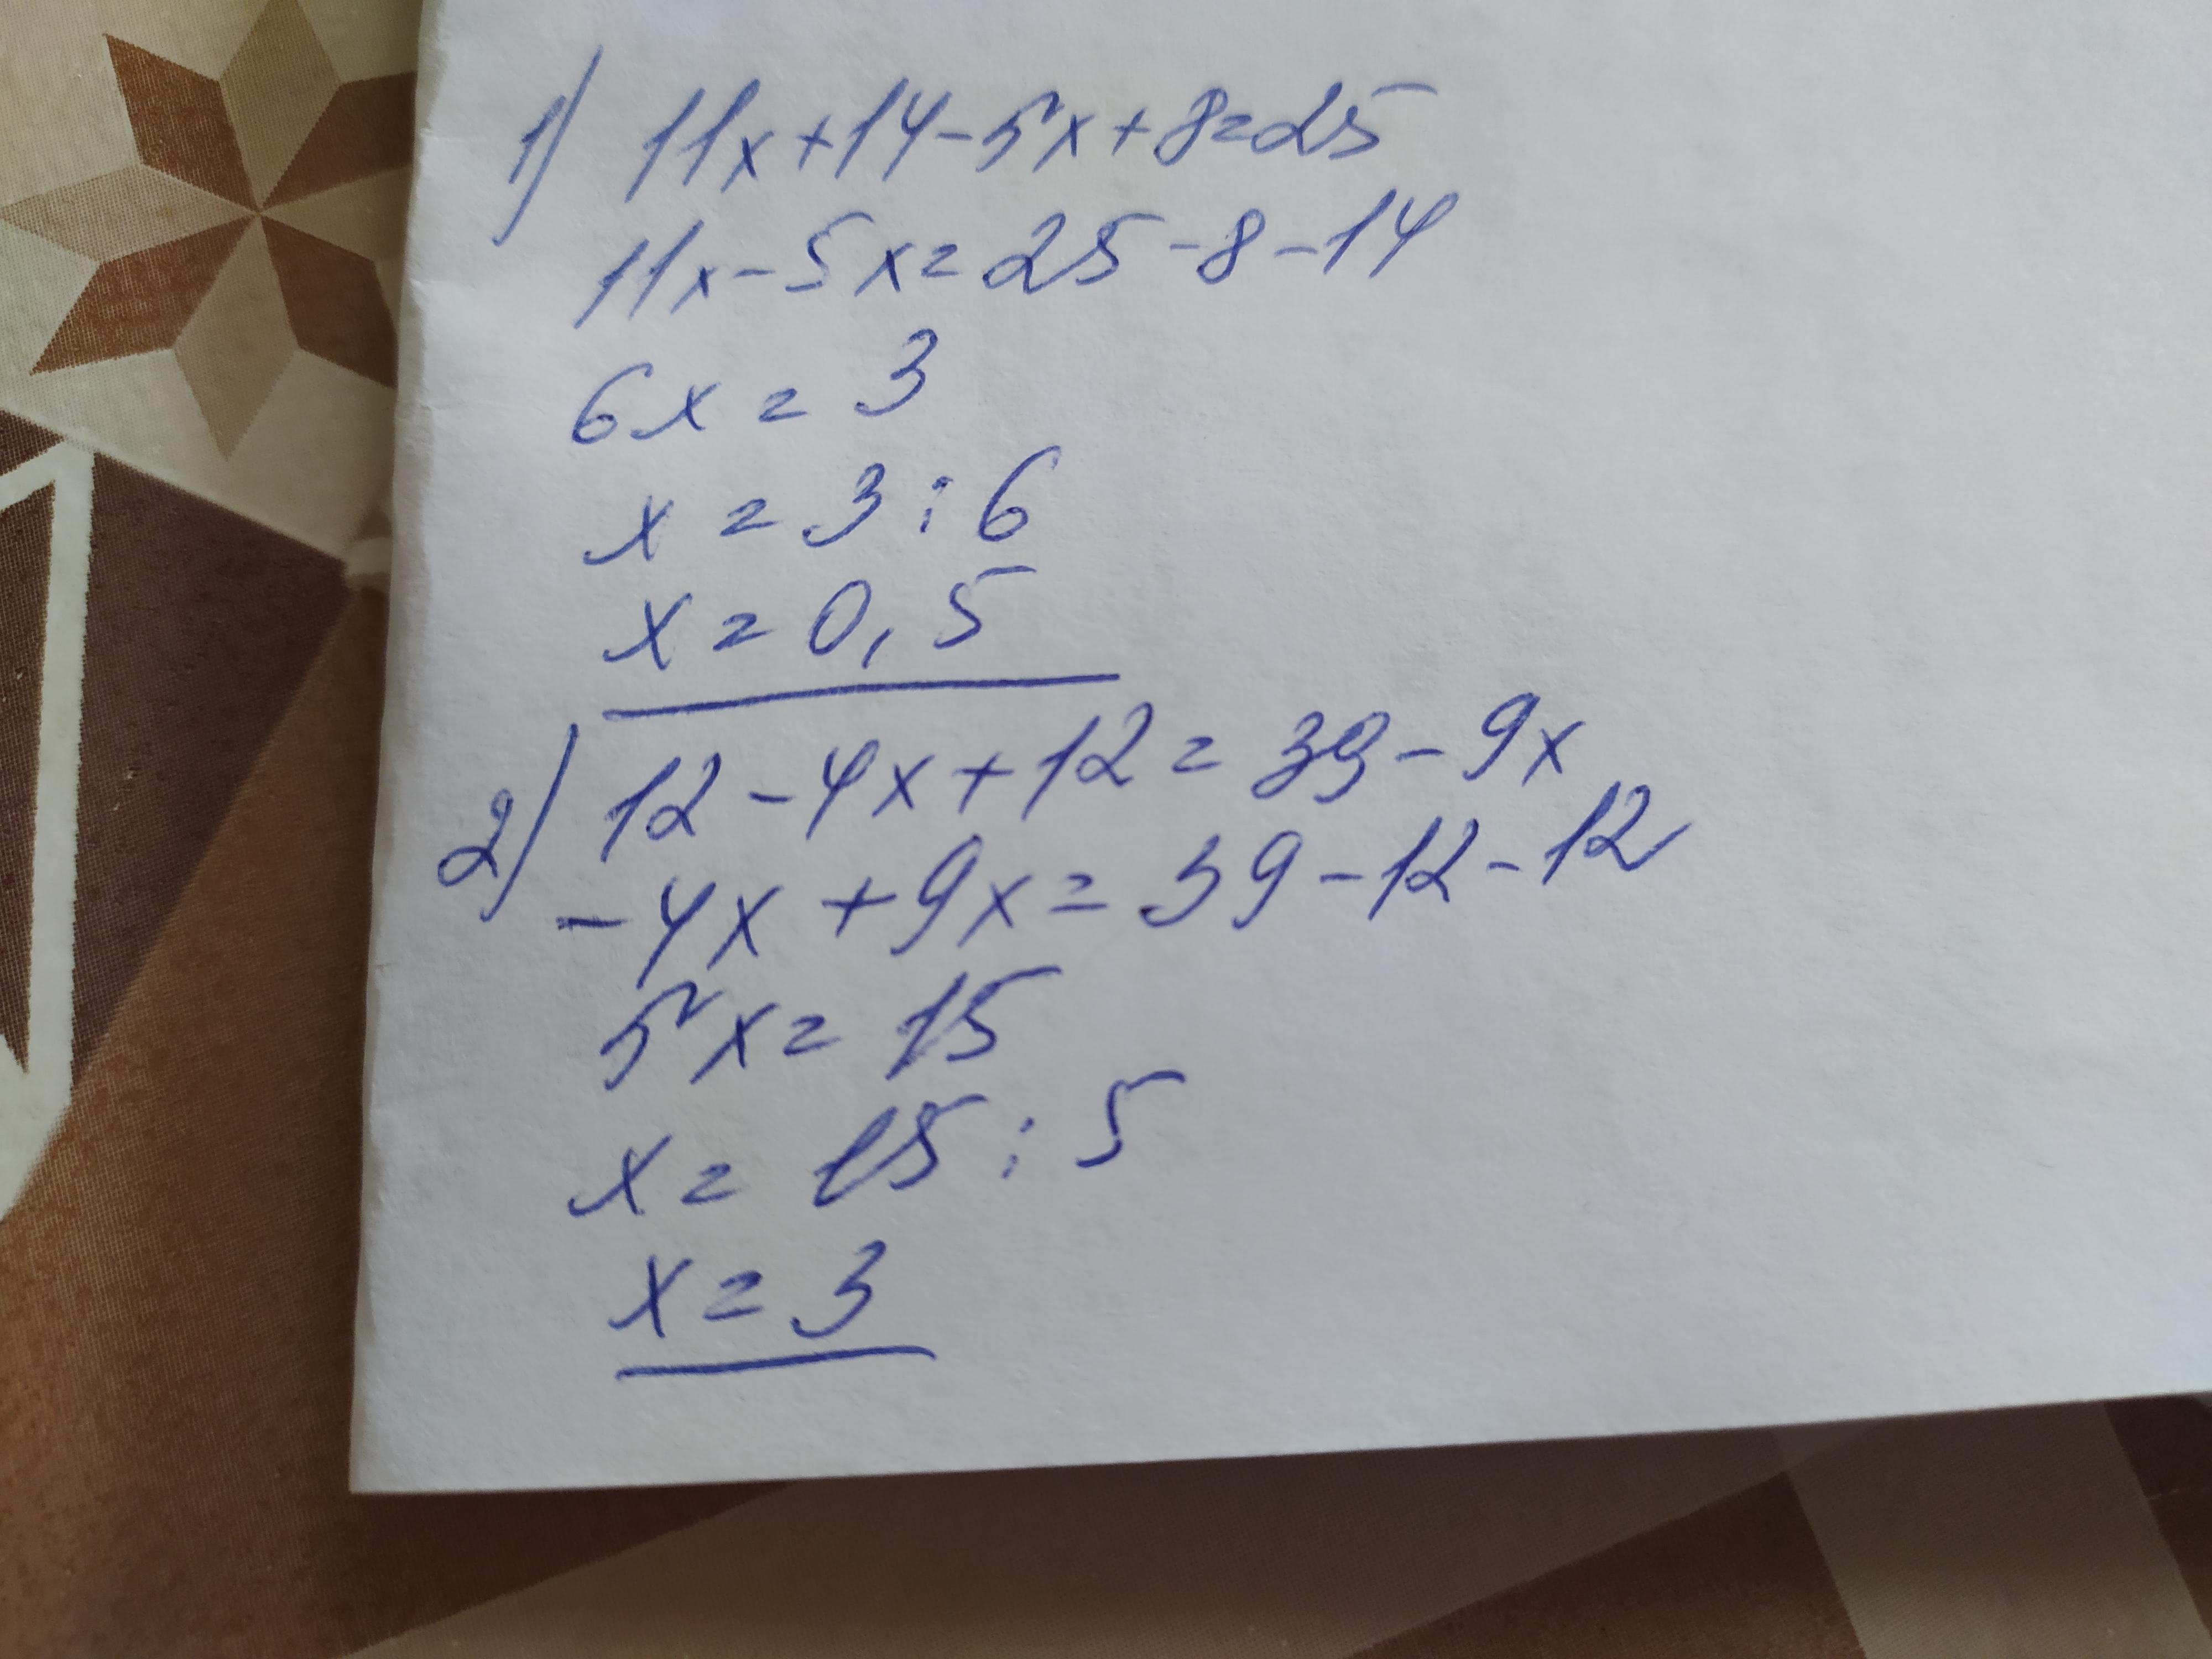 1) 11x+14-5x+8=25
11x-5x=25-8-14
6x=3
x=3:6
x=0,5
2) 12-4x+12=39-9x
-4x+9x=39-12-12
5x=15
x=15:5
x=3